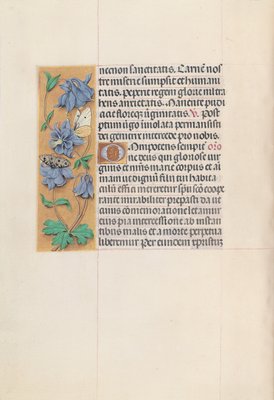 necnon sanctitatis. Carne nos
tre miserie sumpsit et humani
tatis. peperit regem glorie mi tra
hens a Manente pudi
cicie flore virginitatis. V. Post
partum virgo inviolata permansisti
dei genitrix intercede pro nobis.
Omnipotens sempit oro
ne deus qui gloriose vir
ginis et mris marie corpus et a
imam ut dignu filii tui habita
culu effici mereretur spu sco coope
rante mirabiliter preparasti da ut
cuius comemoratione letamur
eius pia intercessione ab instan
tibus malis et a morte perpetua
liberemur Per eundem